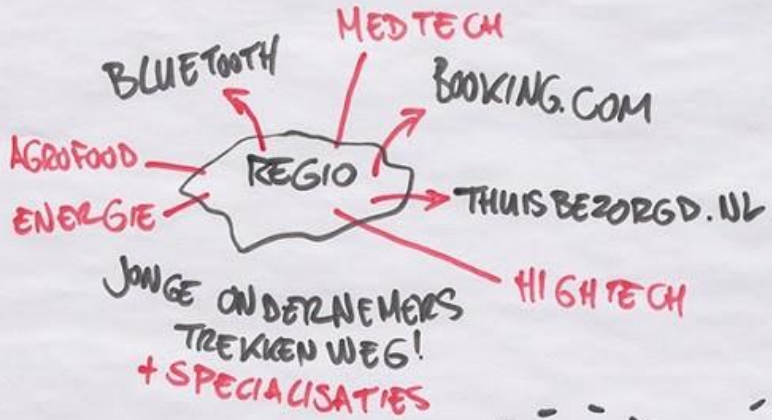 MEDTECH
BLUETOOTH
BOOKING.COM
AGROFOOD
REGIO
ENERGIE
THUISBEZORGD.NL
HIGHTECH
JONGE ONDERNEMERS
TREKKEN WEG!
+ SPECIALISATIES